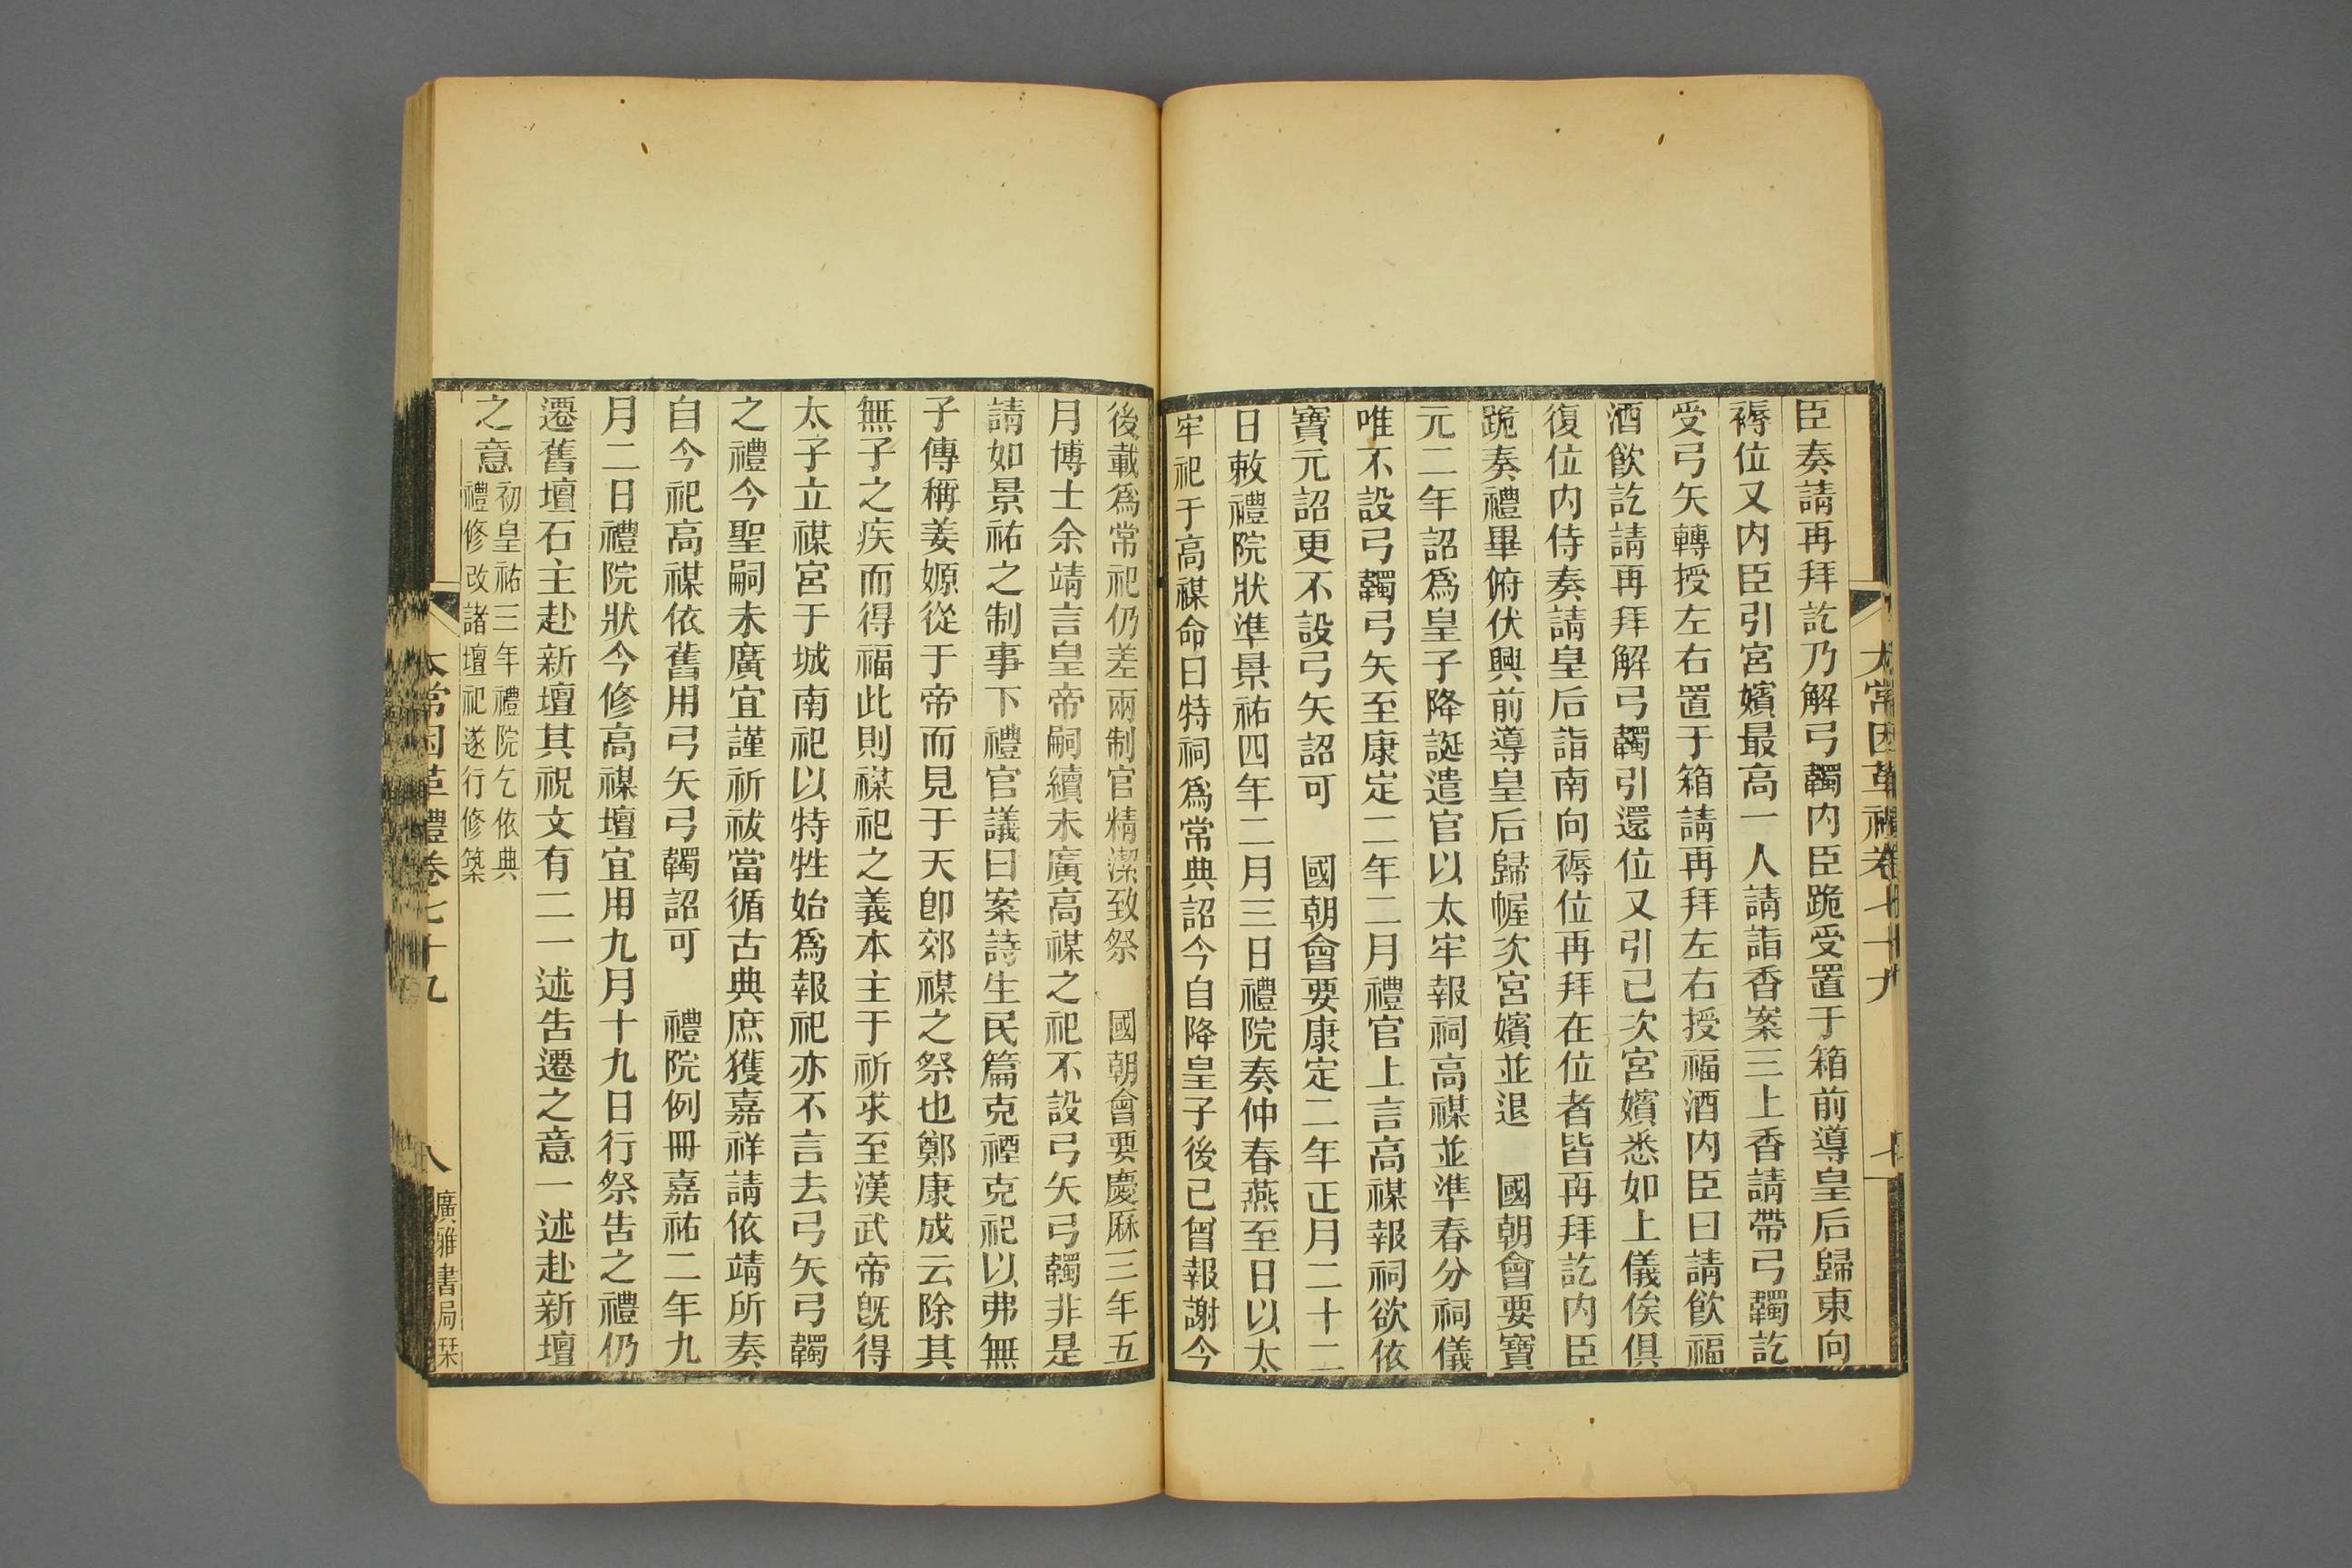 臣奏請再拜訖乃解弓韣内臣跪受置于箱前導皇后歸東向
褥位又内臣引宮嬪最高一人請詣香案三上香請帶弓韣訖
受弓矢轉授左右置于箱請再拜左右授福酒内臣曰請飮福
酒飮訖請再拜解弓韣引還位又引已次宮嬪悉如上儀俟俱
復位内侍奏請皇后詣南向褥位再拜在位者皆再拜訖内臣
跪奏禮畢俯伏興前導皇后歸幄次宮嬪並退　國朝會要寶
元二年詔爲皇子降誕遣官以太牢報祠高禖並準春分祠儀
唯不設弓韣弓矢至康定二年二月禮官上言高禖報祠欲依
寶元詔更不設弓矢詔可　國朝會要康定二年正月二十二
日敕禮院狀準景祐四年二月三日禮院奏仲春燕至日以太
牢祀于高禖命曰特祠爲常典詔今自降皇子後已曾報謝今
太常因革禮卷七十九
七
後載爲常祀仍差兩制官精潔致祭　國朝會要慶厤三年五
月博士余靖言皇帝嗣續未廣高禖之祀不設弓矢弓韣非是
請如景祐之制事下禮官議曰案詩生民篇克禋克祀以弗無
子傳稱姜嫄從于帝而見于天卽郊禖之祭也鄭康成云除其
無子之疾而得福此則禖祀之義本主于祈求至漢武帝旣得
太子立禖宮于城南祀以特牲始爲報祀亦不言去弓矢弓韣
之禮今聖嗣未廣宜謹祈祓當循古典庶獲嘉祥請依靖所奏
自今祀高禖依舊用弓矢弓韣詔可　禮院例冊嘉祐二年九
月二日禮院狀今修高禖壇宜用九月十九日行祭告之禮仍
遷舊壇石主赴新壇其祝文有二一述告遷之意一述赴新壇
之意
初皇祐三年禮院乞依典
禮修改諸壇祀遂行修築
太常因革禮卷七十九
八
廣雅書局栞